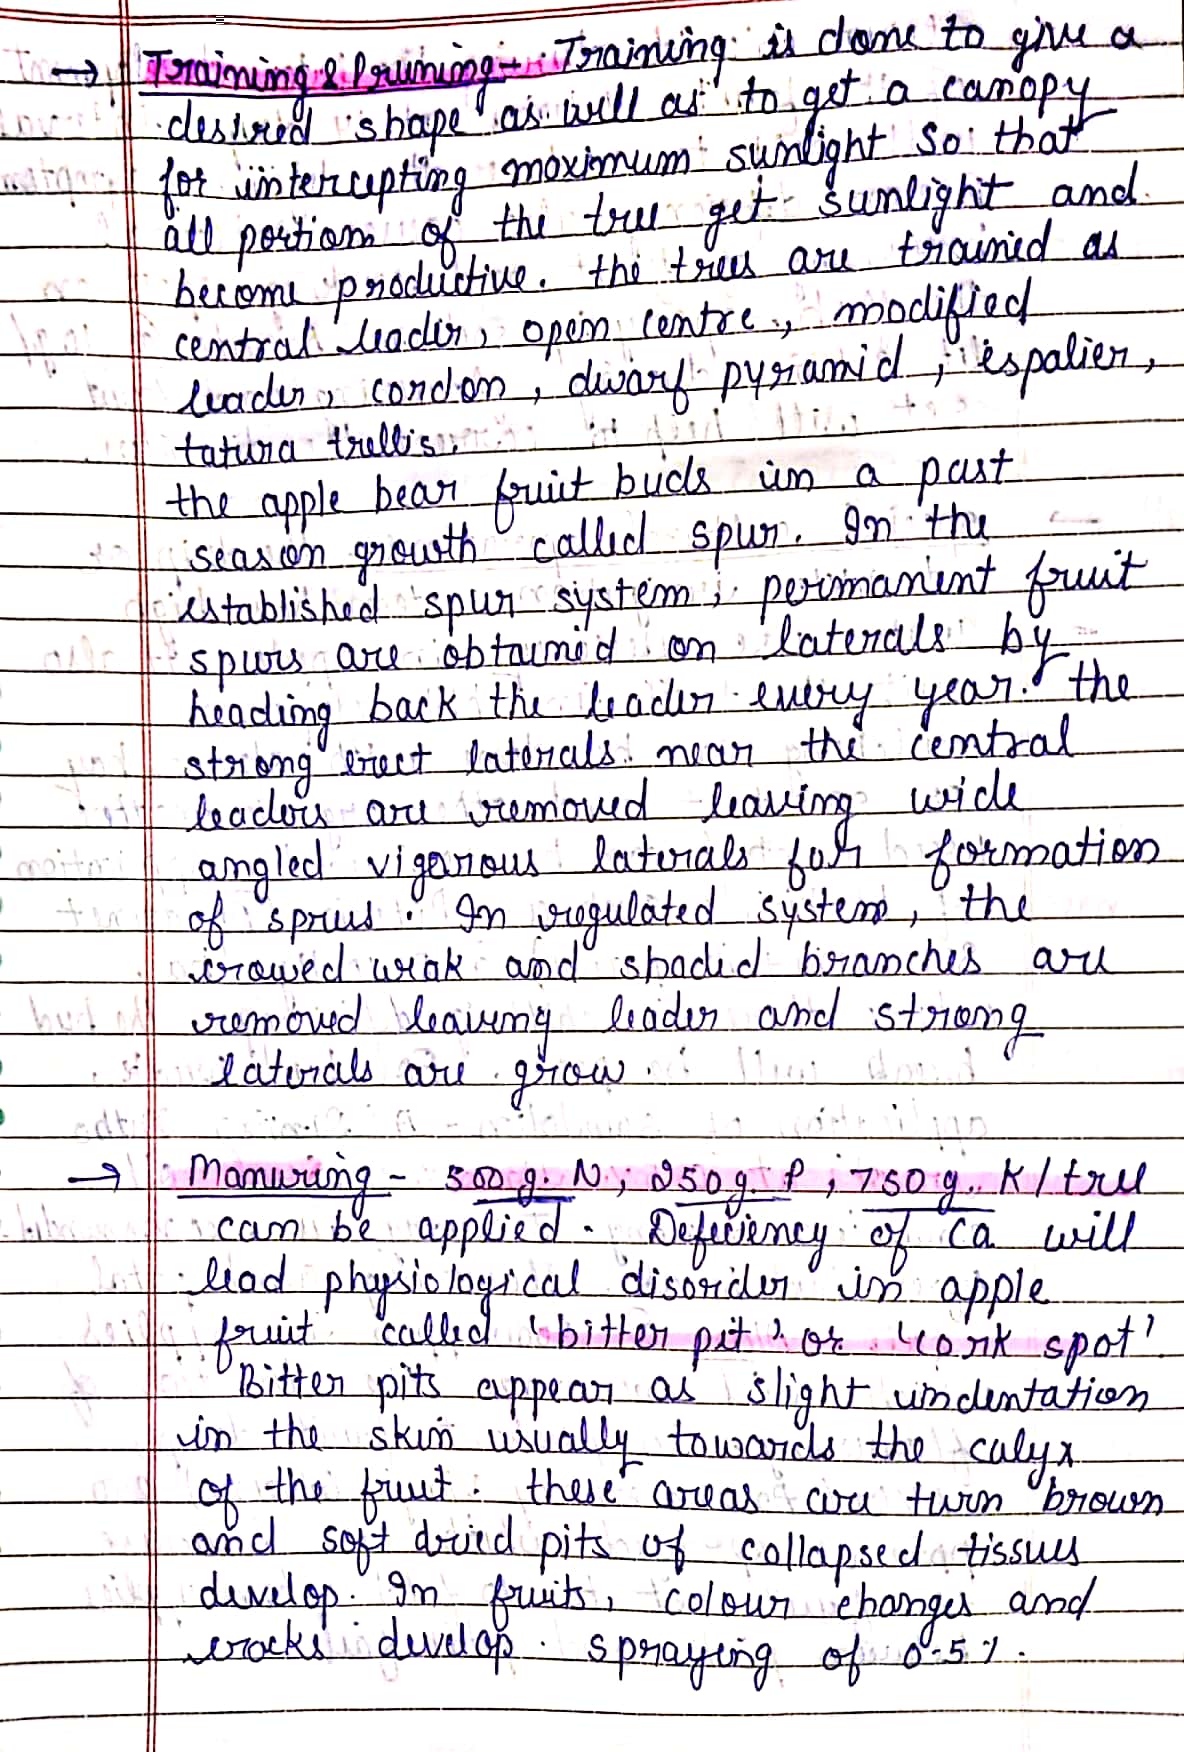 → Training & Pruning - Training is done to give a
desired shape as well as to get a canopy
for intercepting maximum sunlight so that
all portion of the tree get sunlight and
become productive. the trees are trained as
central leader, open centre, modified
leader, cordon, dwarf pyramid, espalier,
tatura trellis.
the apple bear fruit buds in a past
season growth called spur. In the
established spur system, permanent fruit
spurs are obtained on laterals by
heading back the leader every year. the
strong erect laterals near the central
leaders are removed leaving wide
angled vigorous laterals for formation
of sprus. In regulated system, the
crowed weak and shaded branches are
removed leaving leader and strong
laterals are grow.
→ Manuring - 500 g. N, 250 g. P, 750 g. K / tree
can be applied. Deficiency of Ca will
lead physiological disorder in apple
fruit called 'bitter pit' or 'cork spot'
Bitter pits appear as slight indentation
in the skin usually towards the calyx
of the fruit. these areas are turn brown
and soft dried pits of collapsed tissues
develop. In fruits, colour changes and
cracks develop. spraying of 0.5%.